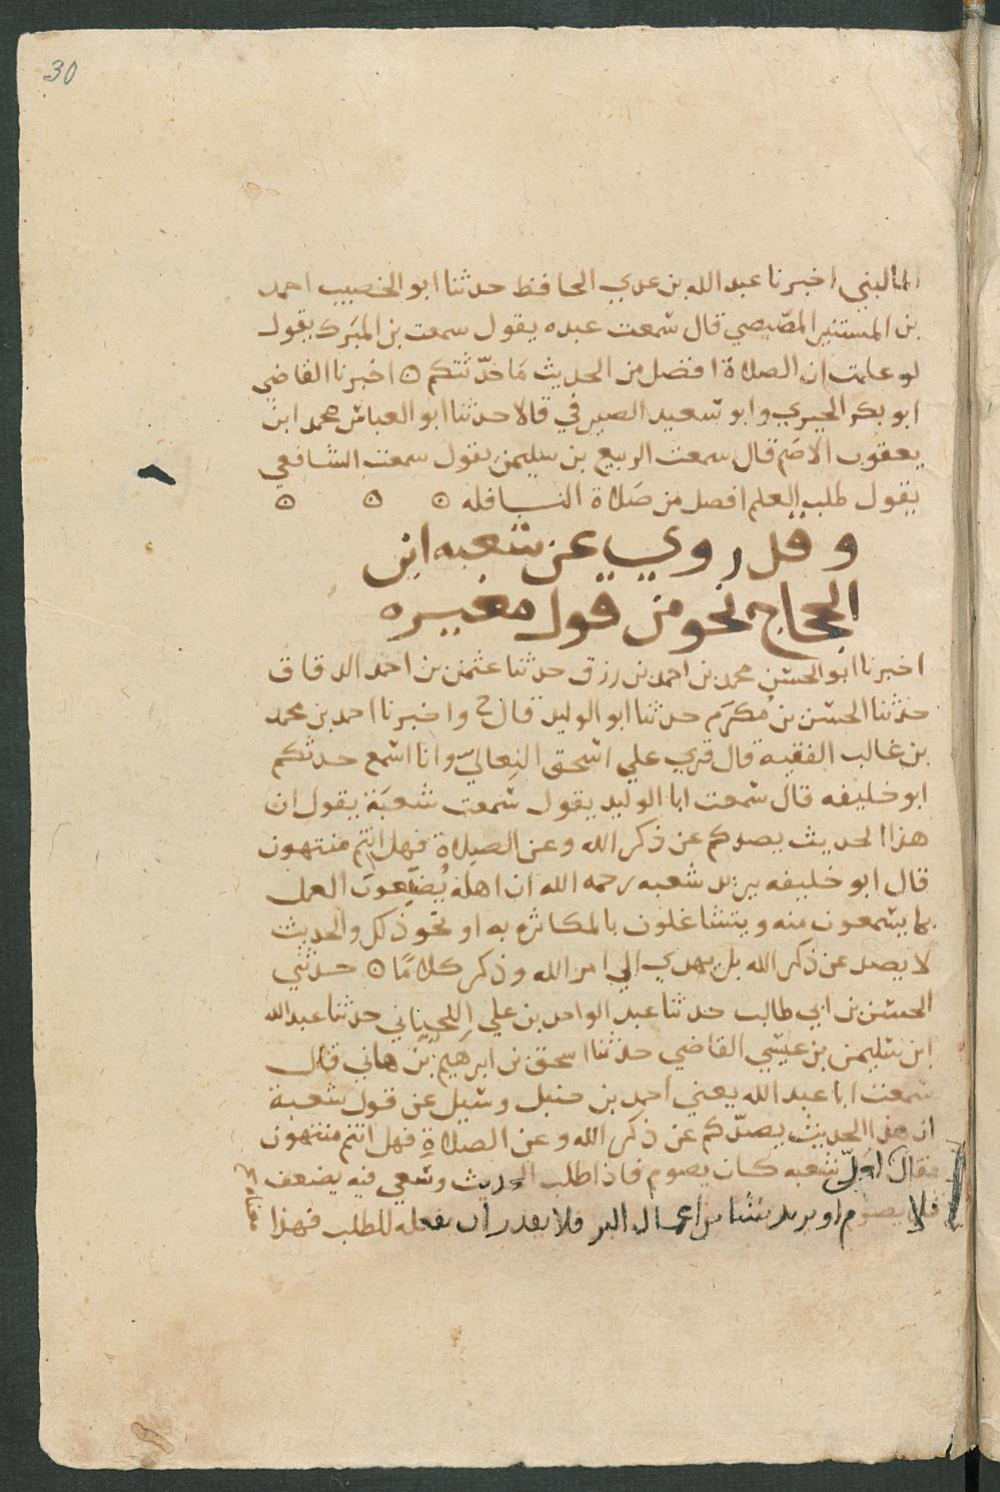 30
الماليني اخبرنا عبد الله بن عدي الحافظ حدثنا ابو الخصيب احمد
بن المستنير المصّيصي قال سمعت عبده يقول سمعت بن المبرك يقول
لو علمت ان الصلاة افضل من الحديث مَا حدّثتكم ۞ اخبرنا القاضي
ابو بكر الحيري وابو سعيد الصيرفي قالا حدثنا ابو العباس محمد ابن
يعقوب الاصَم قال سمعت الربيع بن سليمن يقول سمعت الشافعي
يقول طلب العلم افضل من صَلاة النافله ۞ ۞ ۞
وقد روي عن شعبه ابن
الحجاج نحو من قول مغيره
اخبرنا ابو الحسن محمد بن احمد بن رزق حدثنا عثمن بن احمد الدقاق
حدثنا الحسن بن مُكرَم حدثنا ابو الوليد قال ح واخبرنا احمد بن محمد
بن غالب الفقيه قال قري علي اسحق النِعالي وانا اسمع حدثكم
ابو خليفه قال سمعت ابا الوليد يقول سَمعت شعبَة يقول ان
هذا الحديث يصدكم عن ذكر الله وعن الصلاة فهل انتم منتهون
قال ابو خليفه يريد شعبه رحمه الله ان اهله يُضَيّعونَ العمل
بما يسمعون منه ويتشاغلون بالمكاثره به او نحو ذلك والحديث
لا يصد عن ذكر الله بل يهدي الي امر الله وذكر كلامًا ۞ حدثني
الحسن بن ابي طالب حدثنا عبد الواحد بن علي اللحياني حدثنا عبد الله
ابن سليمن بن عيسي القاضي حدثنا اسحق بن ابرهيم بن هاني قال
سمعت ابا عبد الله يعني احمد بن حنبل وسيل عن قول شعبة
ان هذا الحديث يصدّكم عن ذكر الله وعن الصلاةِ فهل انتم منتهون
فقال لعلّ شعبه كان يصوم فاذا طلب الحديث وسعي فيه يضعف
فلا يصوم او يريد شيا من اعمال البر فلا يقدر ان يفعله للطلب فهذا